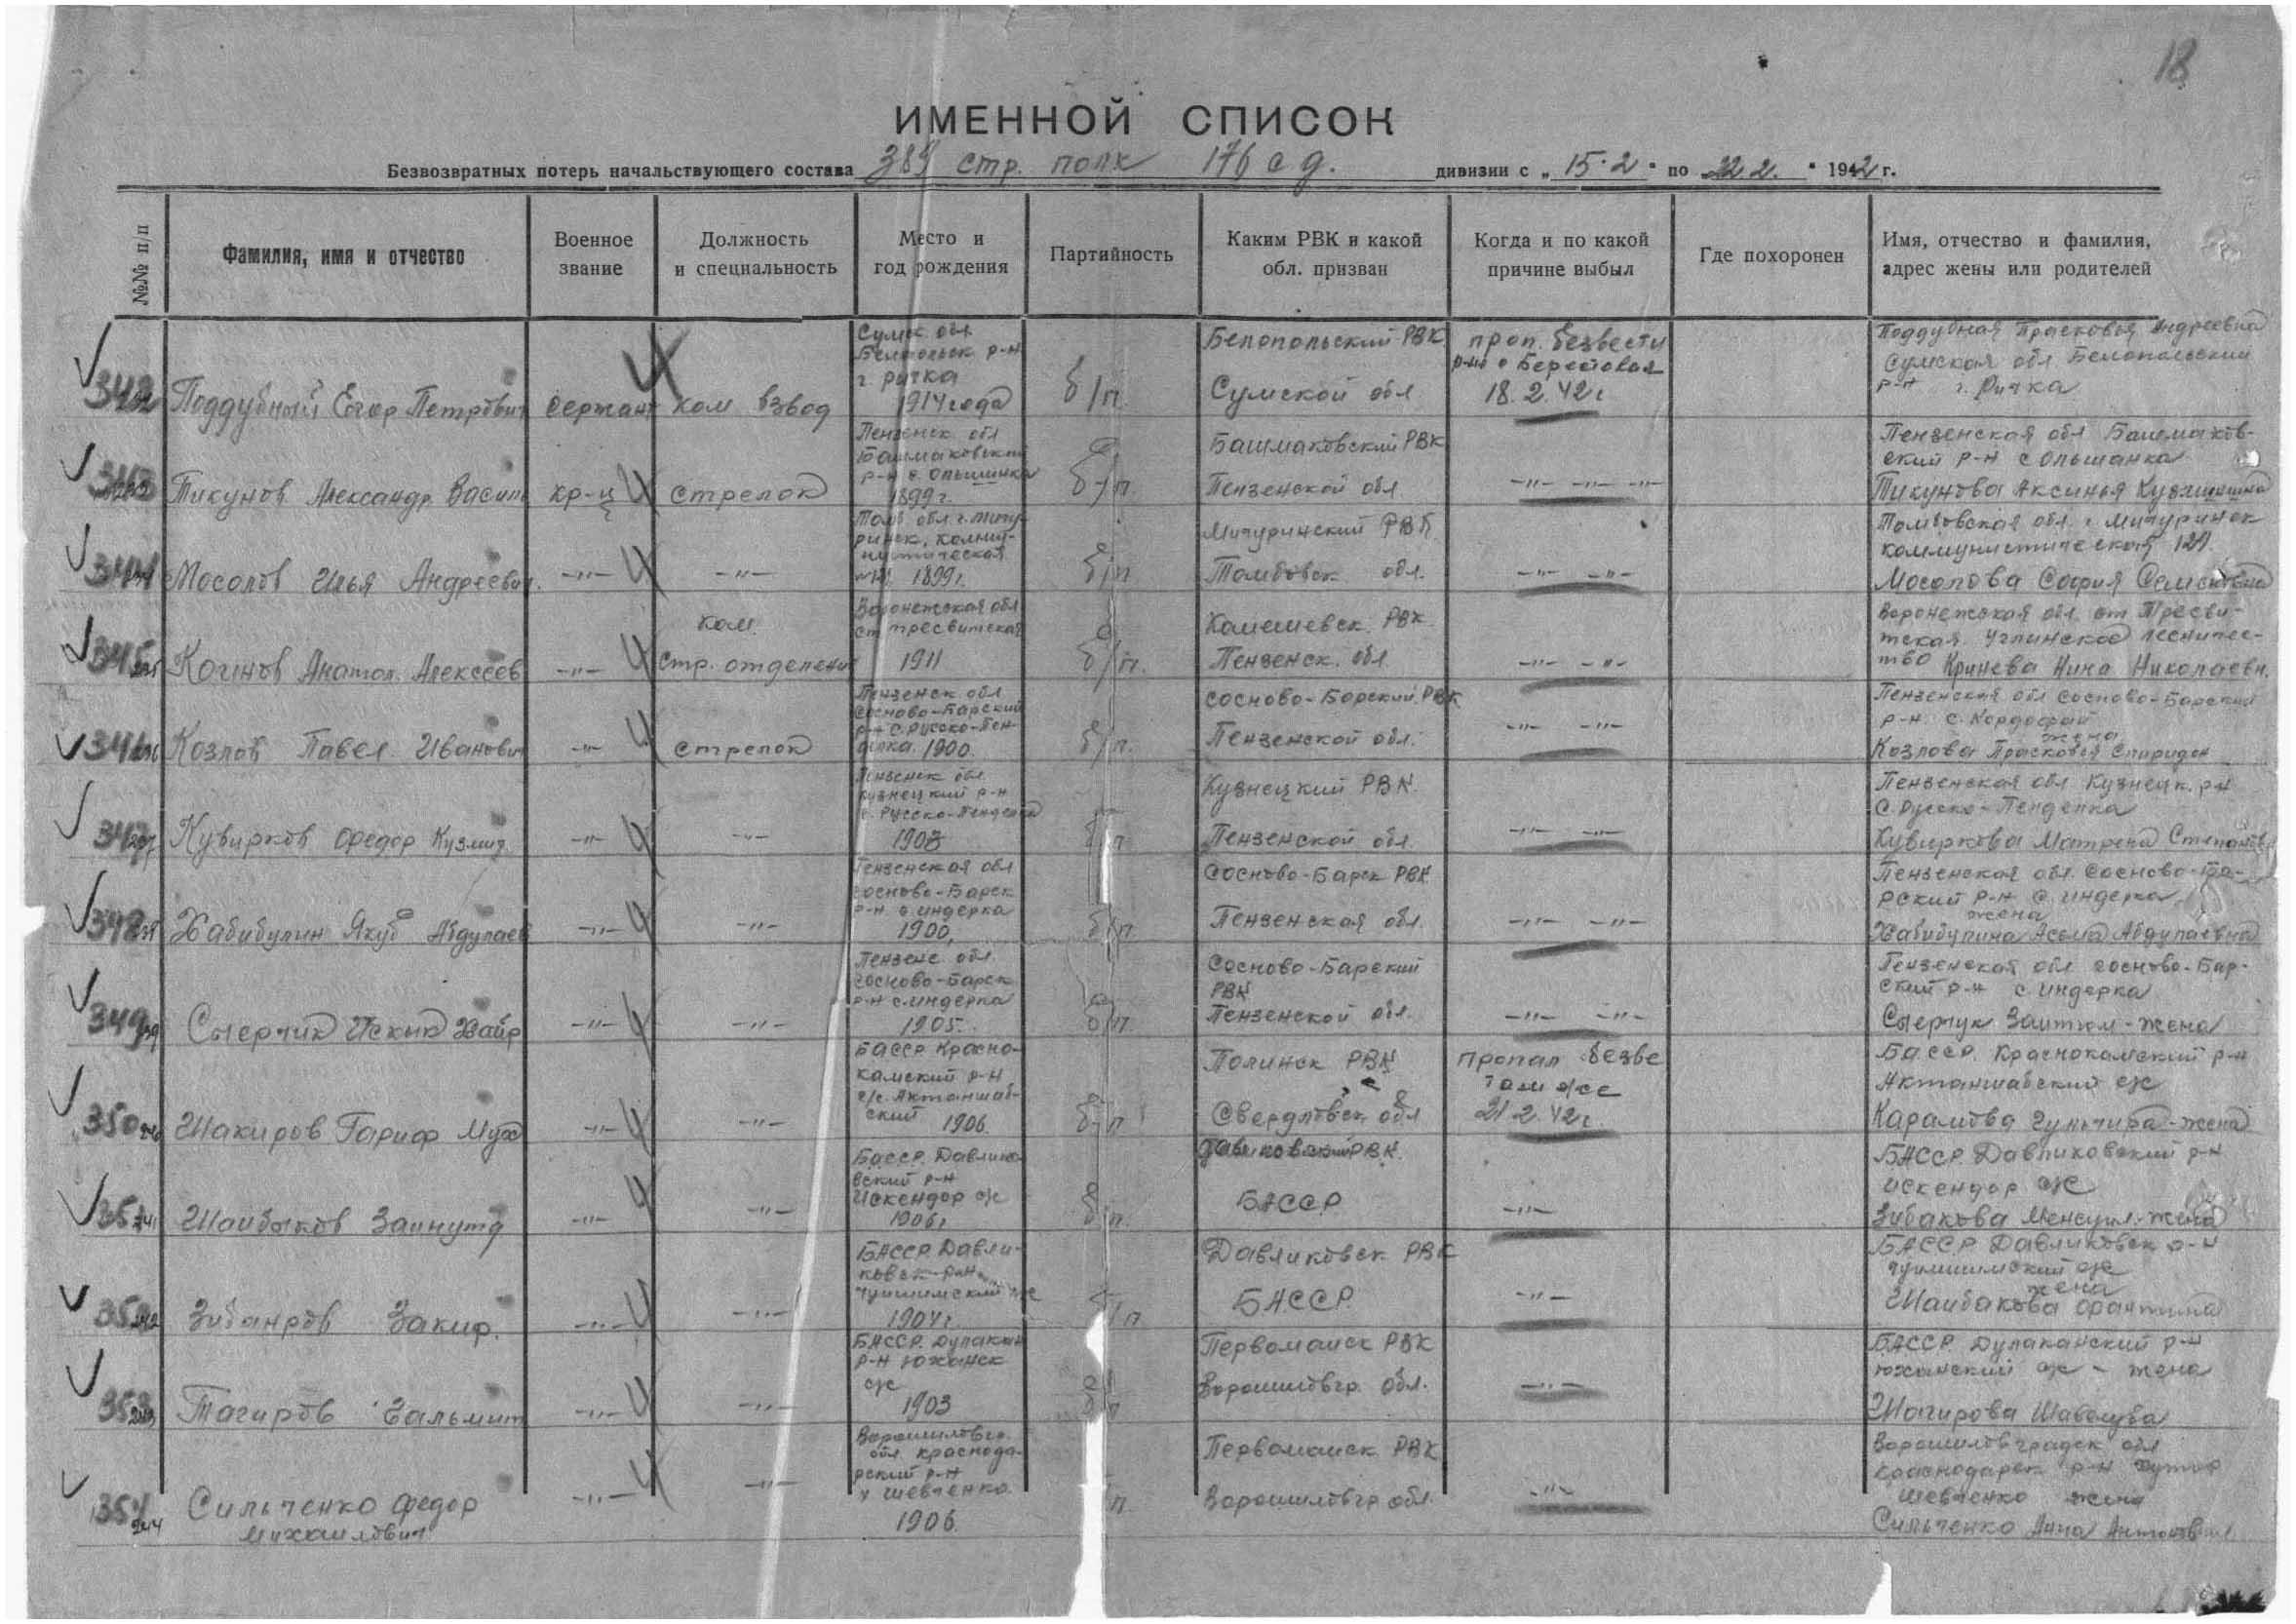 18
ИМЕННОЙ СПИСОК
Безвозвратных потерь начальствующего состава 389 стр. полк 176 с д. дивизии с „ 15.2 " по 22 2. " 1942 г.
№№ п/п
Фамилия, имя и отчество
Военное звание
Должность и специальность
Место и год рождения
Партийность
Каким РВК и какой обл. призван
Когда и по какой причине выбыл
Где похоронен
Имя, отчество и фамилия, адрес жены или родителей
342
Поддубный Егор Петрович
сержант
ком взвод
Сумск. обл.
Белопольск р-н
г. ричка
1914 года
б/п.
Белопольский РВК
Сумской обл
проп. безвести
р-не с Берестовая
18.2.42г
Поддубная Прасковья Андреевна
Сумская обл Белопольский
р-н г. Ричка
343
Тикунов Александр Васил
кр-ц
стрелок
Пензенск обл
Башмаковский
р-н с Ольшанка
1899г.
б/п.
Башмаковский РВК
Пензенской обл.
-"- -"- -"-
Пензенская обл Башмаков-
ский р-н с Ольшанка
Тикунова Аксинья Кузминишна
344
Мосолов Илья Андреевич.
-"-
-"-
Тамб обл г. Мичу-
ринск, комму-
нистическая
1899г.
б/п
Мичуринский РВК
Томбовск обл.
-"- -"-
Томбовская обл. г Мичуринск
коммунистической 121
Мосолова София Семеновна
345
Кочнов Анатол. Алексеев
-"-
ком.
стр. отделения
Воронежская обл
ст тресвитская
1911
б/п.
Камешевск. РВК.
Пензенск. обл.
-"- -"-
Воронежская обл. ст Тресви-
тская Углинское лесничес-
тво Кринева Нина Николаевн.
346
Козлов Павел Иванович
-"-
стрелок
Пензенск обл
Сосново-Барский
р-н с. Русско-Пен-
делка. 1900.
б/п.
сосново-Борский РВК
Пензенской обл.
-"- -"-
Пензенская обл Сосново-Барский
р-н с.
жена
Козлова Прасковья Спиридон
347
Кувирков Федор Кузмич
-"-
-"-
Пензенск обл.
кузнецкий р-н
с. Русско-Пенделка
1903
б/п
Кузнецкий РВК.
Пензенской обл.
-"- -"-
Пензенская обл Кузнецк. р-н
с. Русско-Пенделка
Кувиркова Матрена Степанов
348
Хабибулин Якуб Абдулаев
-"-
-"-
Пензенская обл
сосново-Барск
р-н с индерка
1900,
б/п
Сосново-Барск РВК.
Пензенская обл.
-"- -"-
Пензенская обл. Сосново-Ба-
рский р-н с. индерка
жена
Хабибулина Асьма Абдулаевна
349
Сыерчик Искык Хайр
-"-
-"-
Пензенс. обл.
сосново-Барск
р-н с. индерка
1905.
б/п
Сосново-Барский
РВК
Пензенской обл.
-"- -"-
Пензенская обл сосново-Бар-
ский р-н с индерка
Сыерчук Заитюм - жена
350
Шакиров Гариф Мух
-"-
-"-
БАССР Красно-
камский р-н
с/с. Актаншаб-
ский 1906.
б/п
Полинск РВК
Свердловск обл
пропал безве
там же
21 2.42г
БАССР. Краснокамский р-н
Актаншабский с/с
Карамова Гульчира - жена
351
Шаибаков Заинутд
-"-
-"-
БАССР. Давлико
вский р-н
Искендор с/с
1906г
б/п.
Давликовский РВК.
БАССР
-"-
БАССР. Давликовский р-н
Искендор с/с
Зибакова Менсуил. - жена
352
Зибанров Закир.
-"-
-"-
БАССР. Давли-
ковск р-н
чуишимский с/с
1904г.
б/п
Давликовск РВК
БАССР
-"-
БАССР Давликовск р-н
чуишимский с/с
жена
Шаибакова
353
Тагиров Зальмит
-"-
-"-
БАССР. Дулакан
р-н южанск
с/с
1903
б/п
Первомаиск РВК
Ворошиловгр. обл.
-"-
БАССР. Дулаканский р-н
южанский с/с - жена
Шагирова
354
Сильченко Федор
Михаилович
-"-
-"-
Ворошиловгр.
обл. краснода-
рский р-н
х шевченко
1906.
п.
Первомаиск РВК
Ворошиловгр. обл.
-"-
Ворошиловградск обл
Краснодарск р-н хутор
Шевченко жена
Сильченко Анна Антоновна